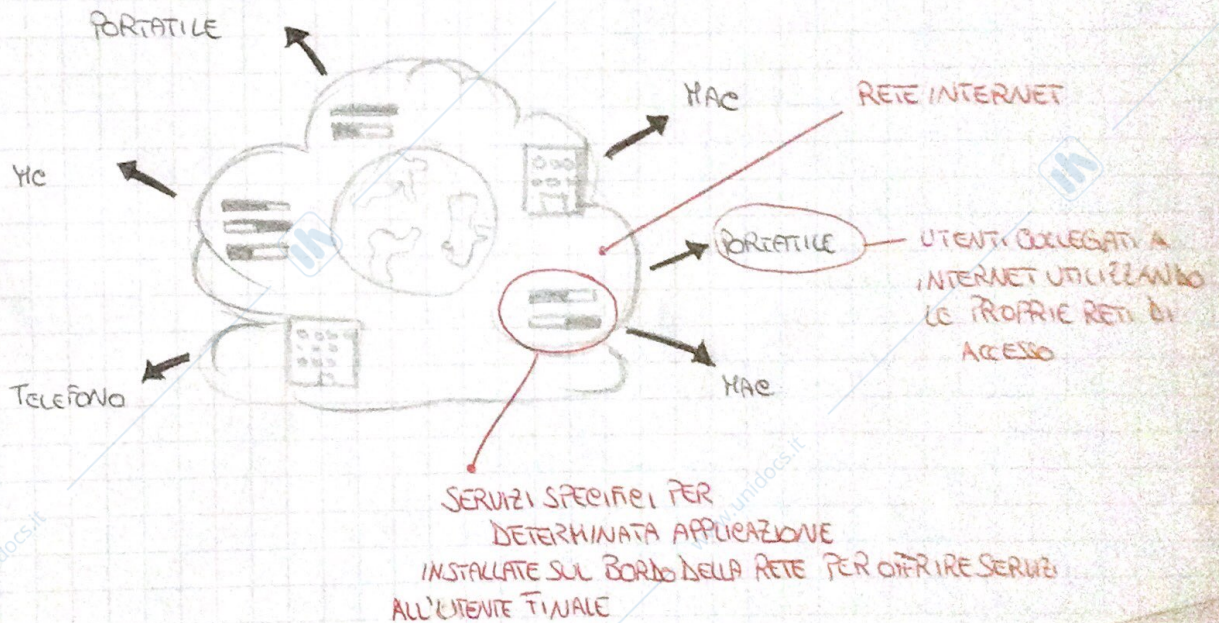 PORTATILE
MAC
RETE INTERNET
MC
PORTATILE
UTENTI COLLEGATI A
INTERNET UTILIZZANDO
LE PROPRIE RETI DI
ACCESSO
TELEFONO
MAC
SERVIZI SPECIFICI PER
DETERMINATA APPLICAZIONE
INSTALLATE SUL BORDO DELLA RETE PER OFFRIRE SERVIZI
ALL'UTENTE FINALE
www.unidocs.it
docs.it